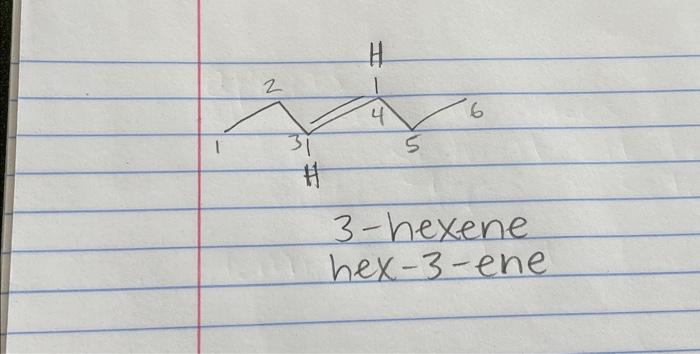 H
2
4
6
1
3
5
H
3-hexene
hex-3-ene